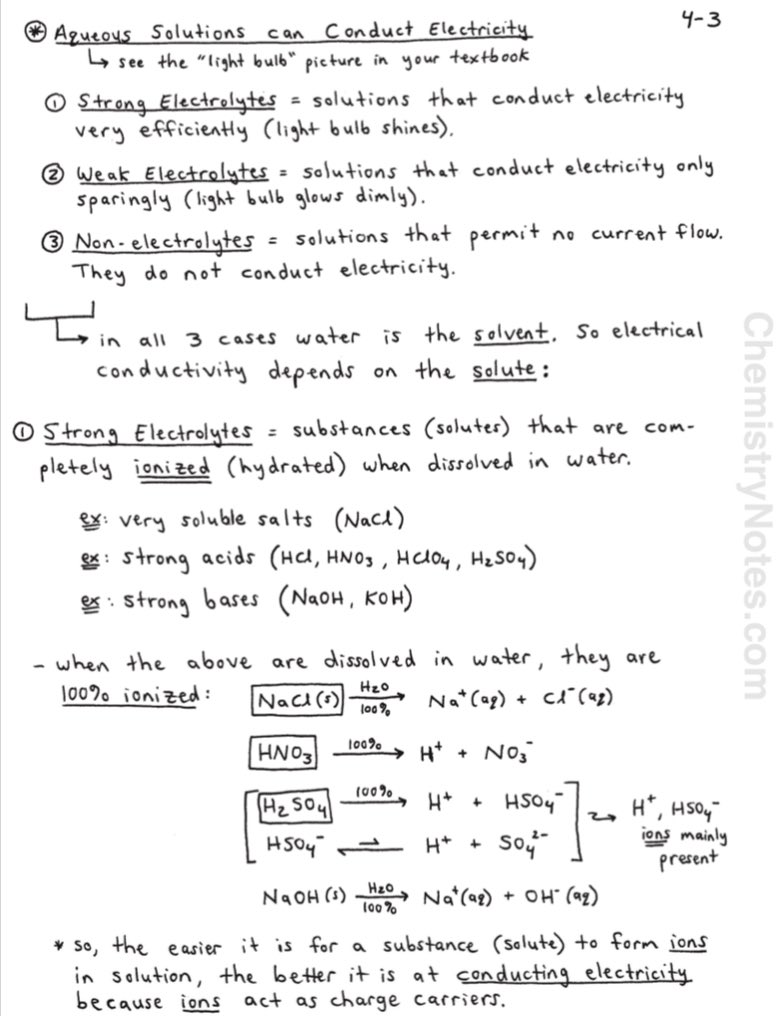 4-3
⊛ Aqueous Solutions can Conduct Electricity
↳ see the "light bulb" picture in your textbook
① Strong Electrolytes = solutions that conduct electricity
very efficiently (light bulb shines).
② Weak Electrolytes = solutions that conduct electricity only
sparingly (light bulb glows dimly).
③ Non-electrolytes = solutions that permit no current flow.
They do not conduct electricity.
↳ in all 3 cases water is the solvent. So electrical
conductivity depends on the solute:
① Strong Electrolytes = substances (solutes) that are com-
pletely ionized (hydrated) when dissolved in water.
ex: very soluble salts (NaCl)
ex: strong acids (HCl, HNO₃, HClO₄, H₂SO₄)
ex: strong bases (NaOH, KOH)
- when the above are dissolved in water, they are
100% ionized: NaCl(s) —H₂O/100%→ Na⁺(aq) + Cl⁻(aq)
HNO₃ —100%→ H⁺ + NO₃⁻
[H₂SO₄ —100%→ H⁺ + HSO₄⁻
HSO₄⁻ ⇌ H⁺ + SO₄²⁻] → H⁺, HSO₄⁻
ions mainly
present
NaOH(s) —H₂O/100%→ Na⁺(aq) + OH⁻(aq)
* so, the easier it is for a substance (solute) to form ions
in solution, the better it is at conducting electricity
because ions act as charge carriers.
ChemistryNotes.com